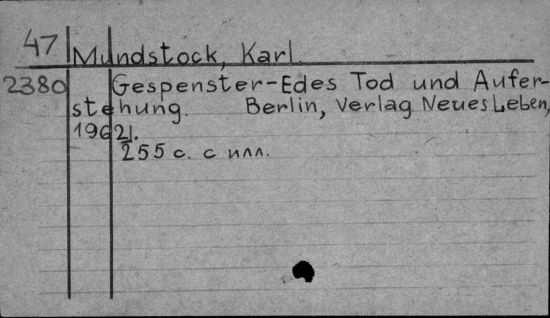 47 Mundstock, Karl.
2380 Gespenster-Edes Tod und Aufer-
stehung. Berlin, Verlag Neues Leben,
1962.
255 с. с илл.